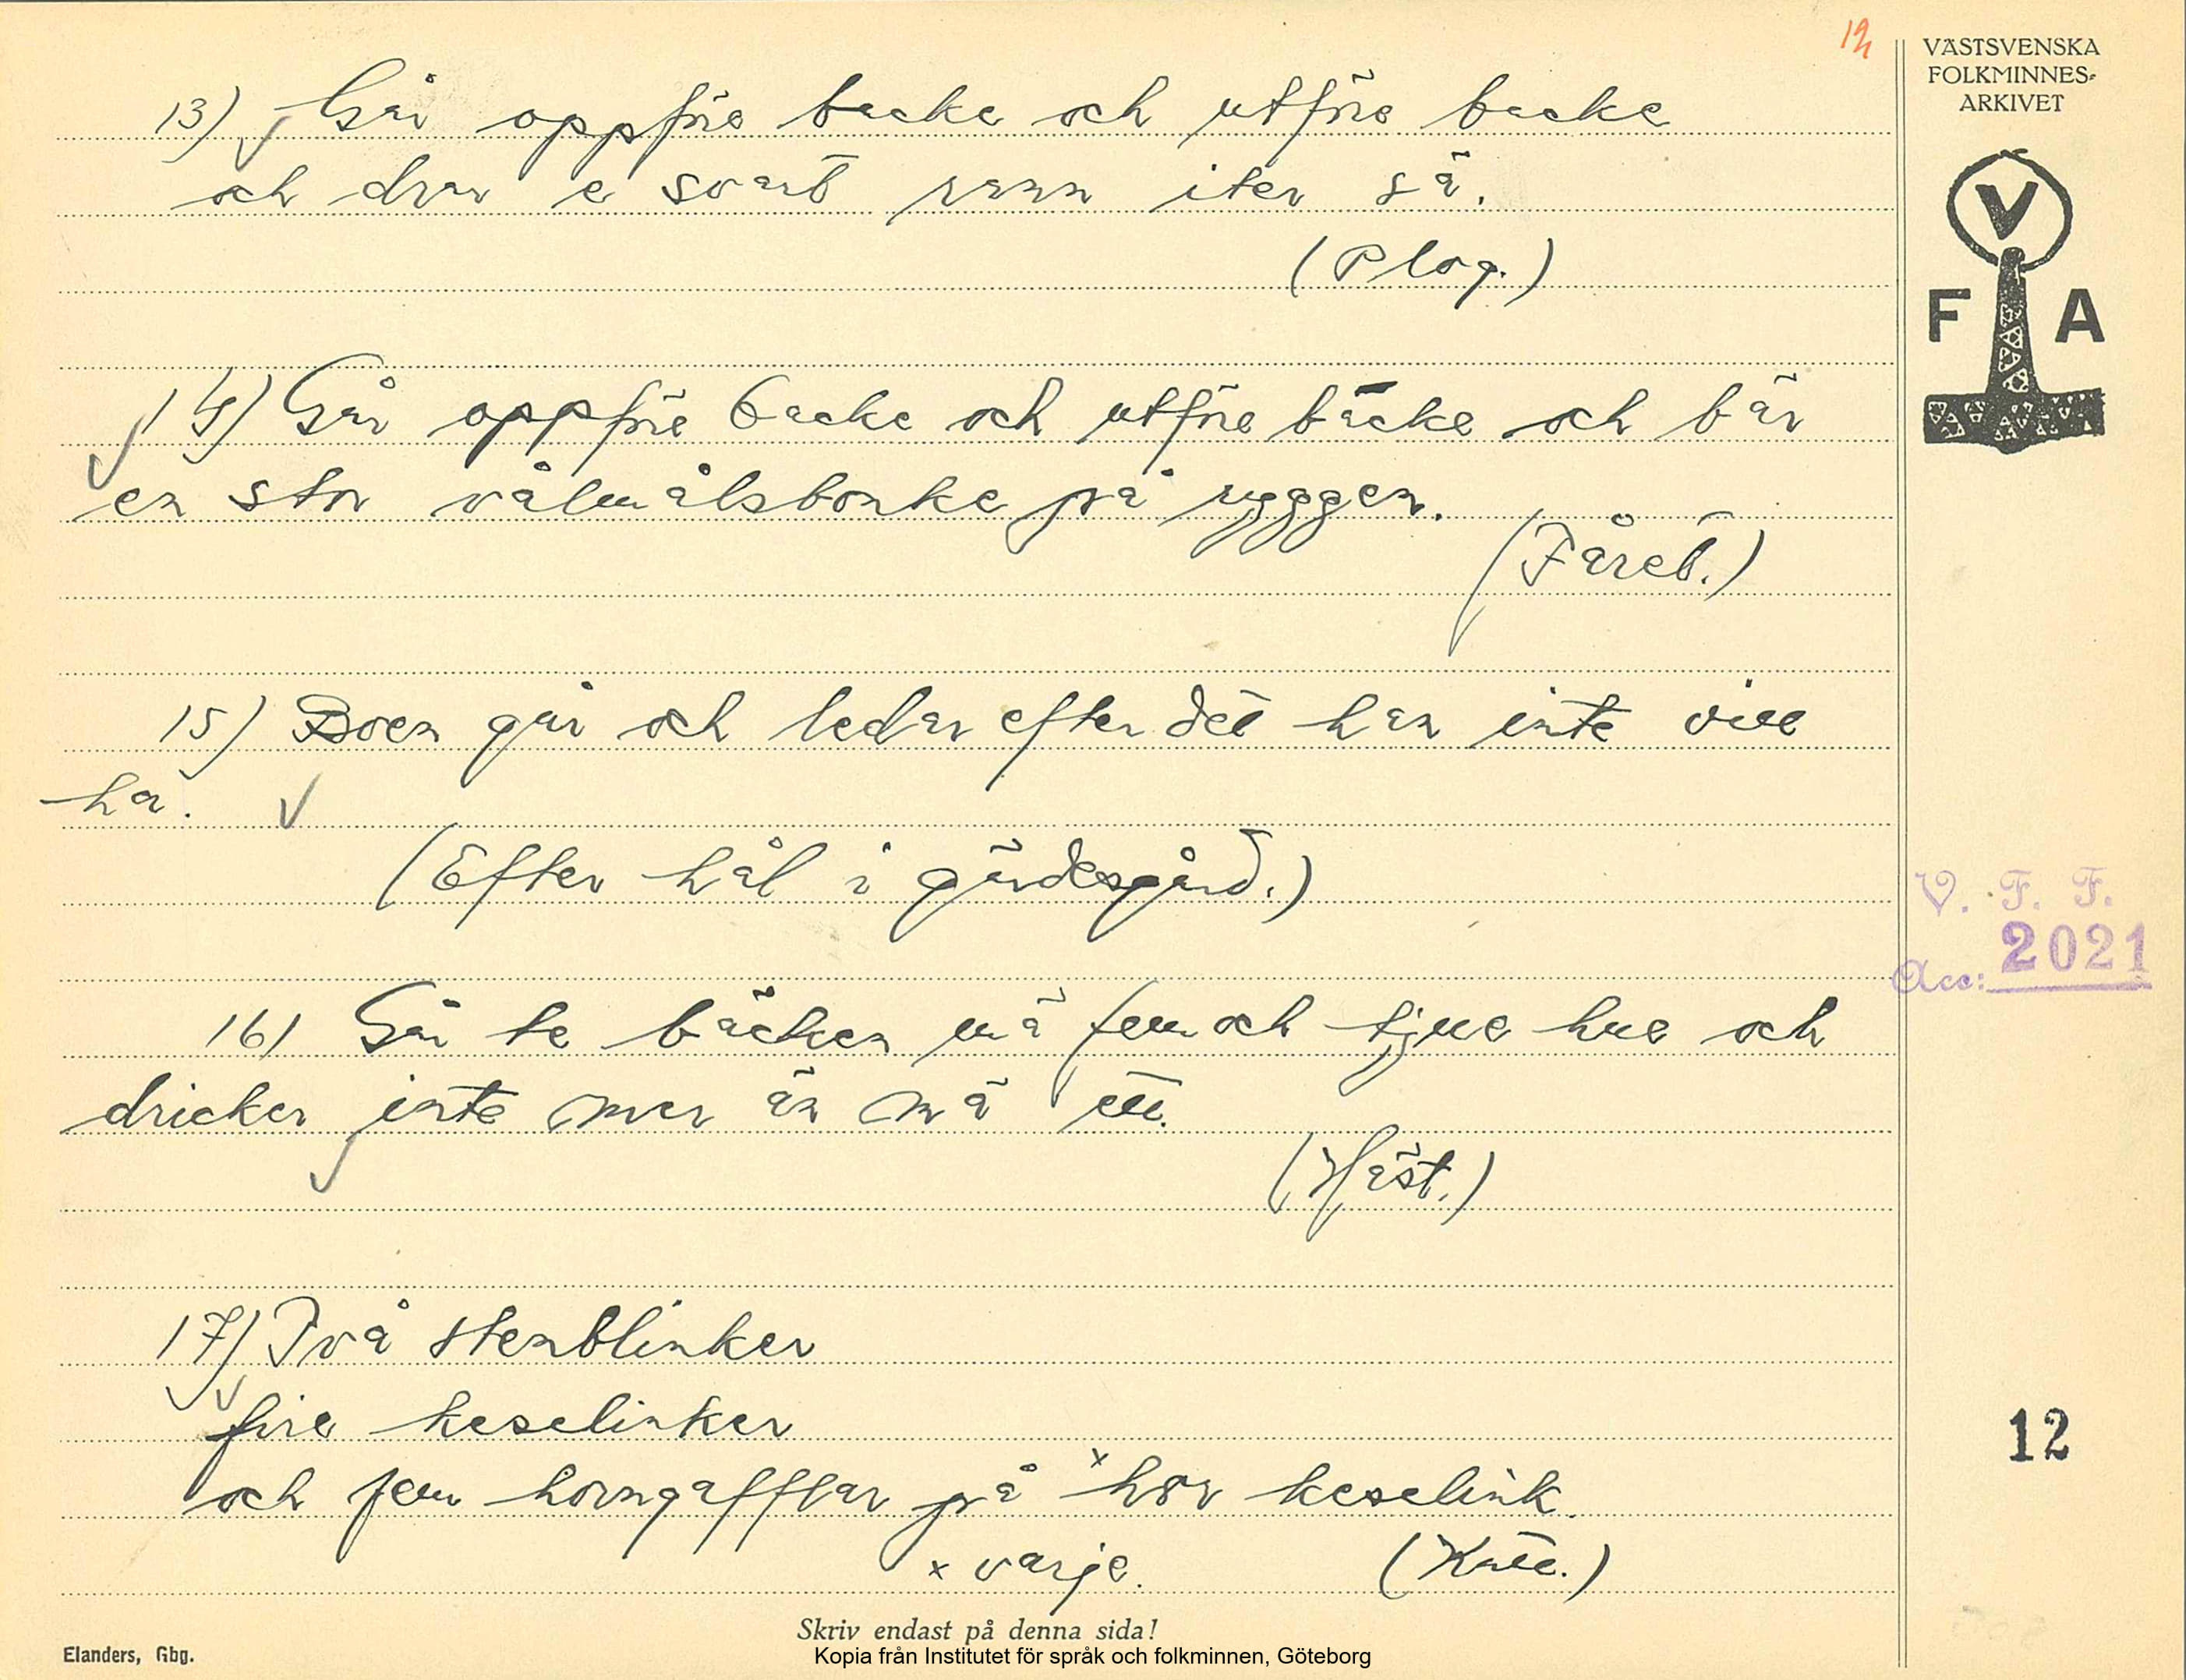 12
VÄSTSVENSKA
FOLKMINNES-
ARKIVET
V
F A
13) Går oppföre backe och utföre backe
och drar e svart rann iter sä.
(Plog.)
14) Går oppföre backe och utföre backe och bär
en stor vålmålsbonke på ryggen.
(Fåret.)
15) Boen går och ledar efter det han inte vill
ha.
(Efter hål i gärdesgård.)
16) Går te bäcken mä fem och tjue hue och
dricker inte mer än mä ett.
(Häst.)
17) Två stenblinker
fire keselinker
och fem horngafflar på x hor keselink.
x varje.
(Katt.)
V. F. F.
Acc: 2021
12
Skriv endast på denna sida!
Elanders, Gbg.
Kopia från Institutet för språk och folkminnen, Göteborg